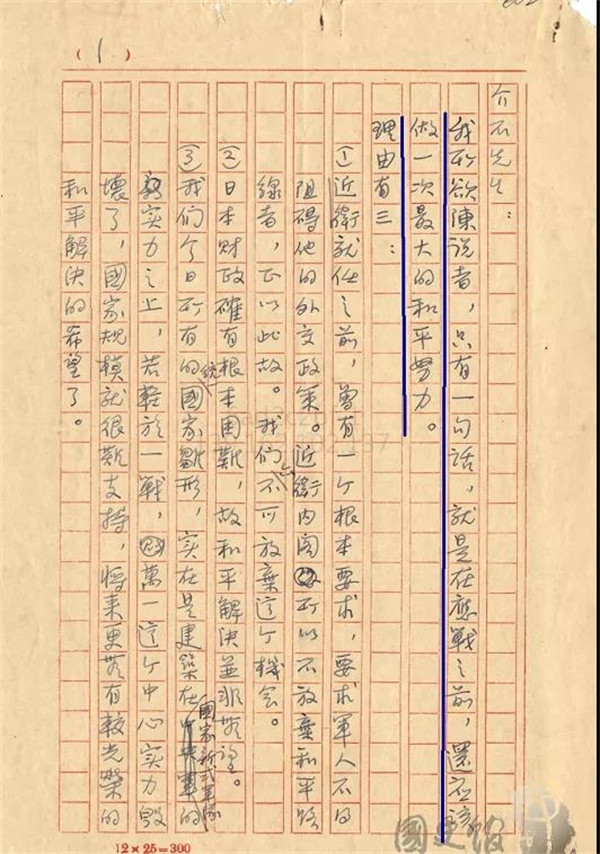 (1)
介石先生：
我所欲陳说者，只有一句话，就是在應戰之前，還应該
做一次最大的和平努力。
理由有三：
①近衛就任之前，曾有一个根本要求，要求軍人不得
阻碍他的外交政策。近衛内阁所以不放棄和平路
線者，正以此故。我们不可放棄这个機会。
②日本財政確有根本困難，故和平解決並非無望。
③我们今日所有的統國家雛形，实在是建築在國家新式軍隊的
实力之上，若輕於一戰，萬一这个中心实力毀
壞了，國家規模就很難支持，將来更無有較光榮的
和平解決的希望了。
12×25=300
國史館